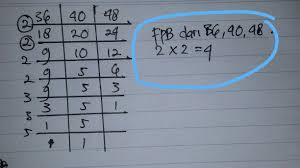 36 40 48
2 18 20 24
2 9 10 12
2 9 5 6
3 9 5 3
3 3 5 1
5 1 5
1
FPB dari 36, 40, 48.
2 x 2 = 4